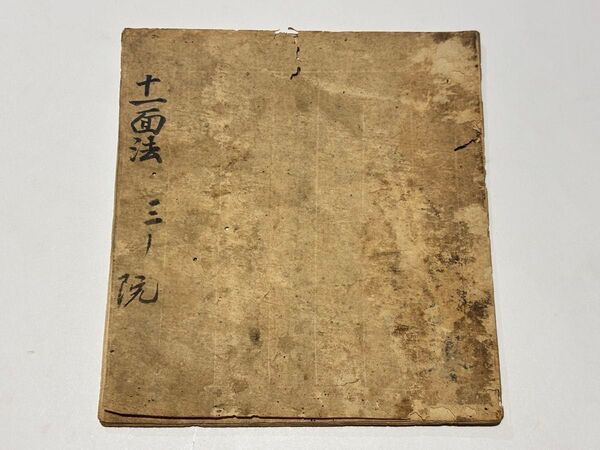 十一面法 三丨院